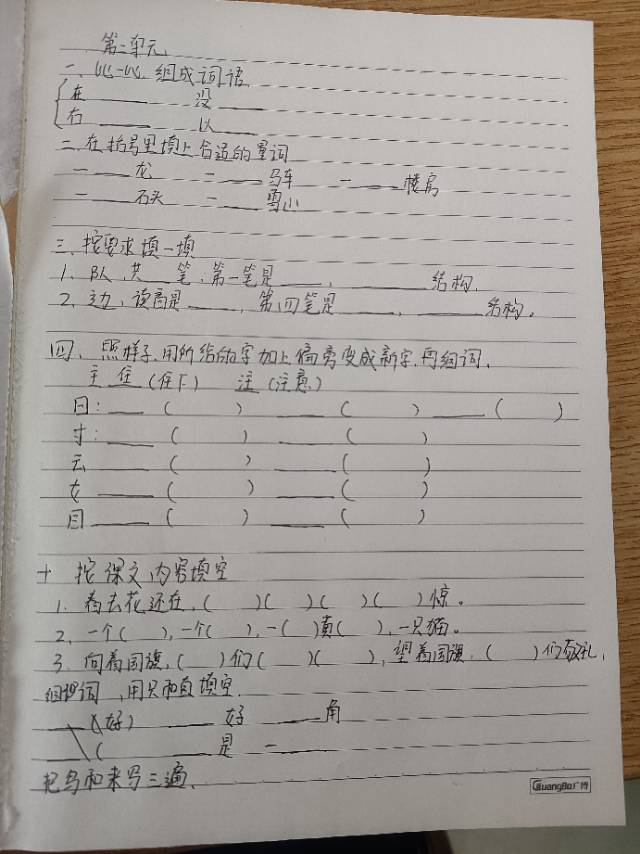 第二单元
一、比一比,组成词语
在____ 没____
右____ 以____
二、在括号里填上合适的量词
一____龙 一____马车 一____楼房
一____石头 一____雪山
三、按要求填一填
1、队,共__笔,第一笔是____,________结构.
2、边,读高是____,第四笔是____,______名构。
四、照样子,用所给的字加上偏旁变成新字,再组词、
主 住(住下) 注(注意)
日:____( ) ____( ) ____( )
寸:____( ) ____( )
云____( ) ____( )
女____( ) ____( )
目____( ) ____( )
十 按课文内容填空
1.春去花还在,( )( )( )( )惊。
2、一个( ),一个( ),一( )真( ),一只猫。
3、向着国旗,( )们( )( ),望着国旗,( )们敬礼,
组词,用只和直填空.
____(好) ____好 ____角
____( ____是 一____
把鸟和来写三遍、
GuangBo广博